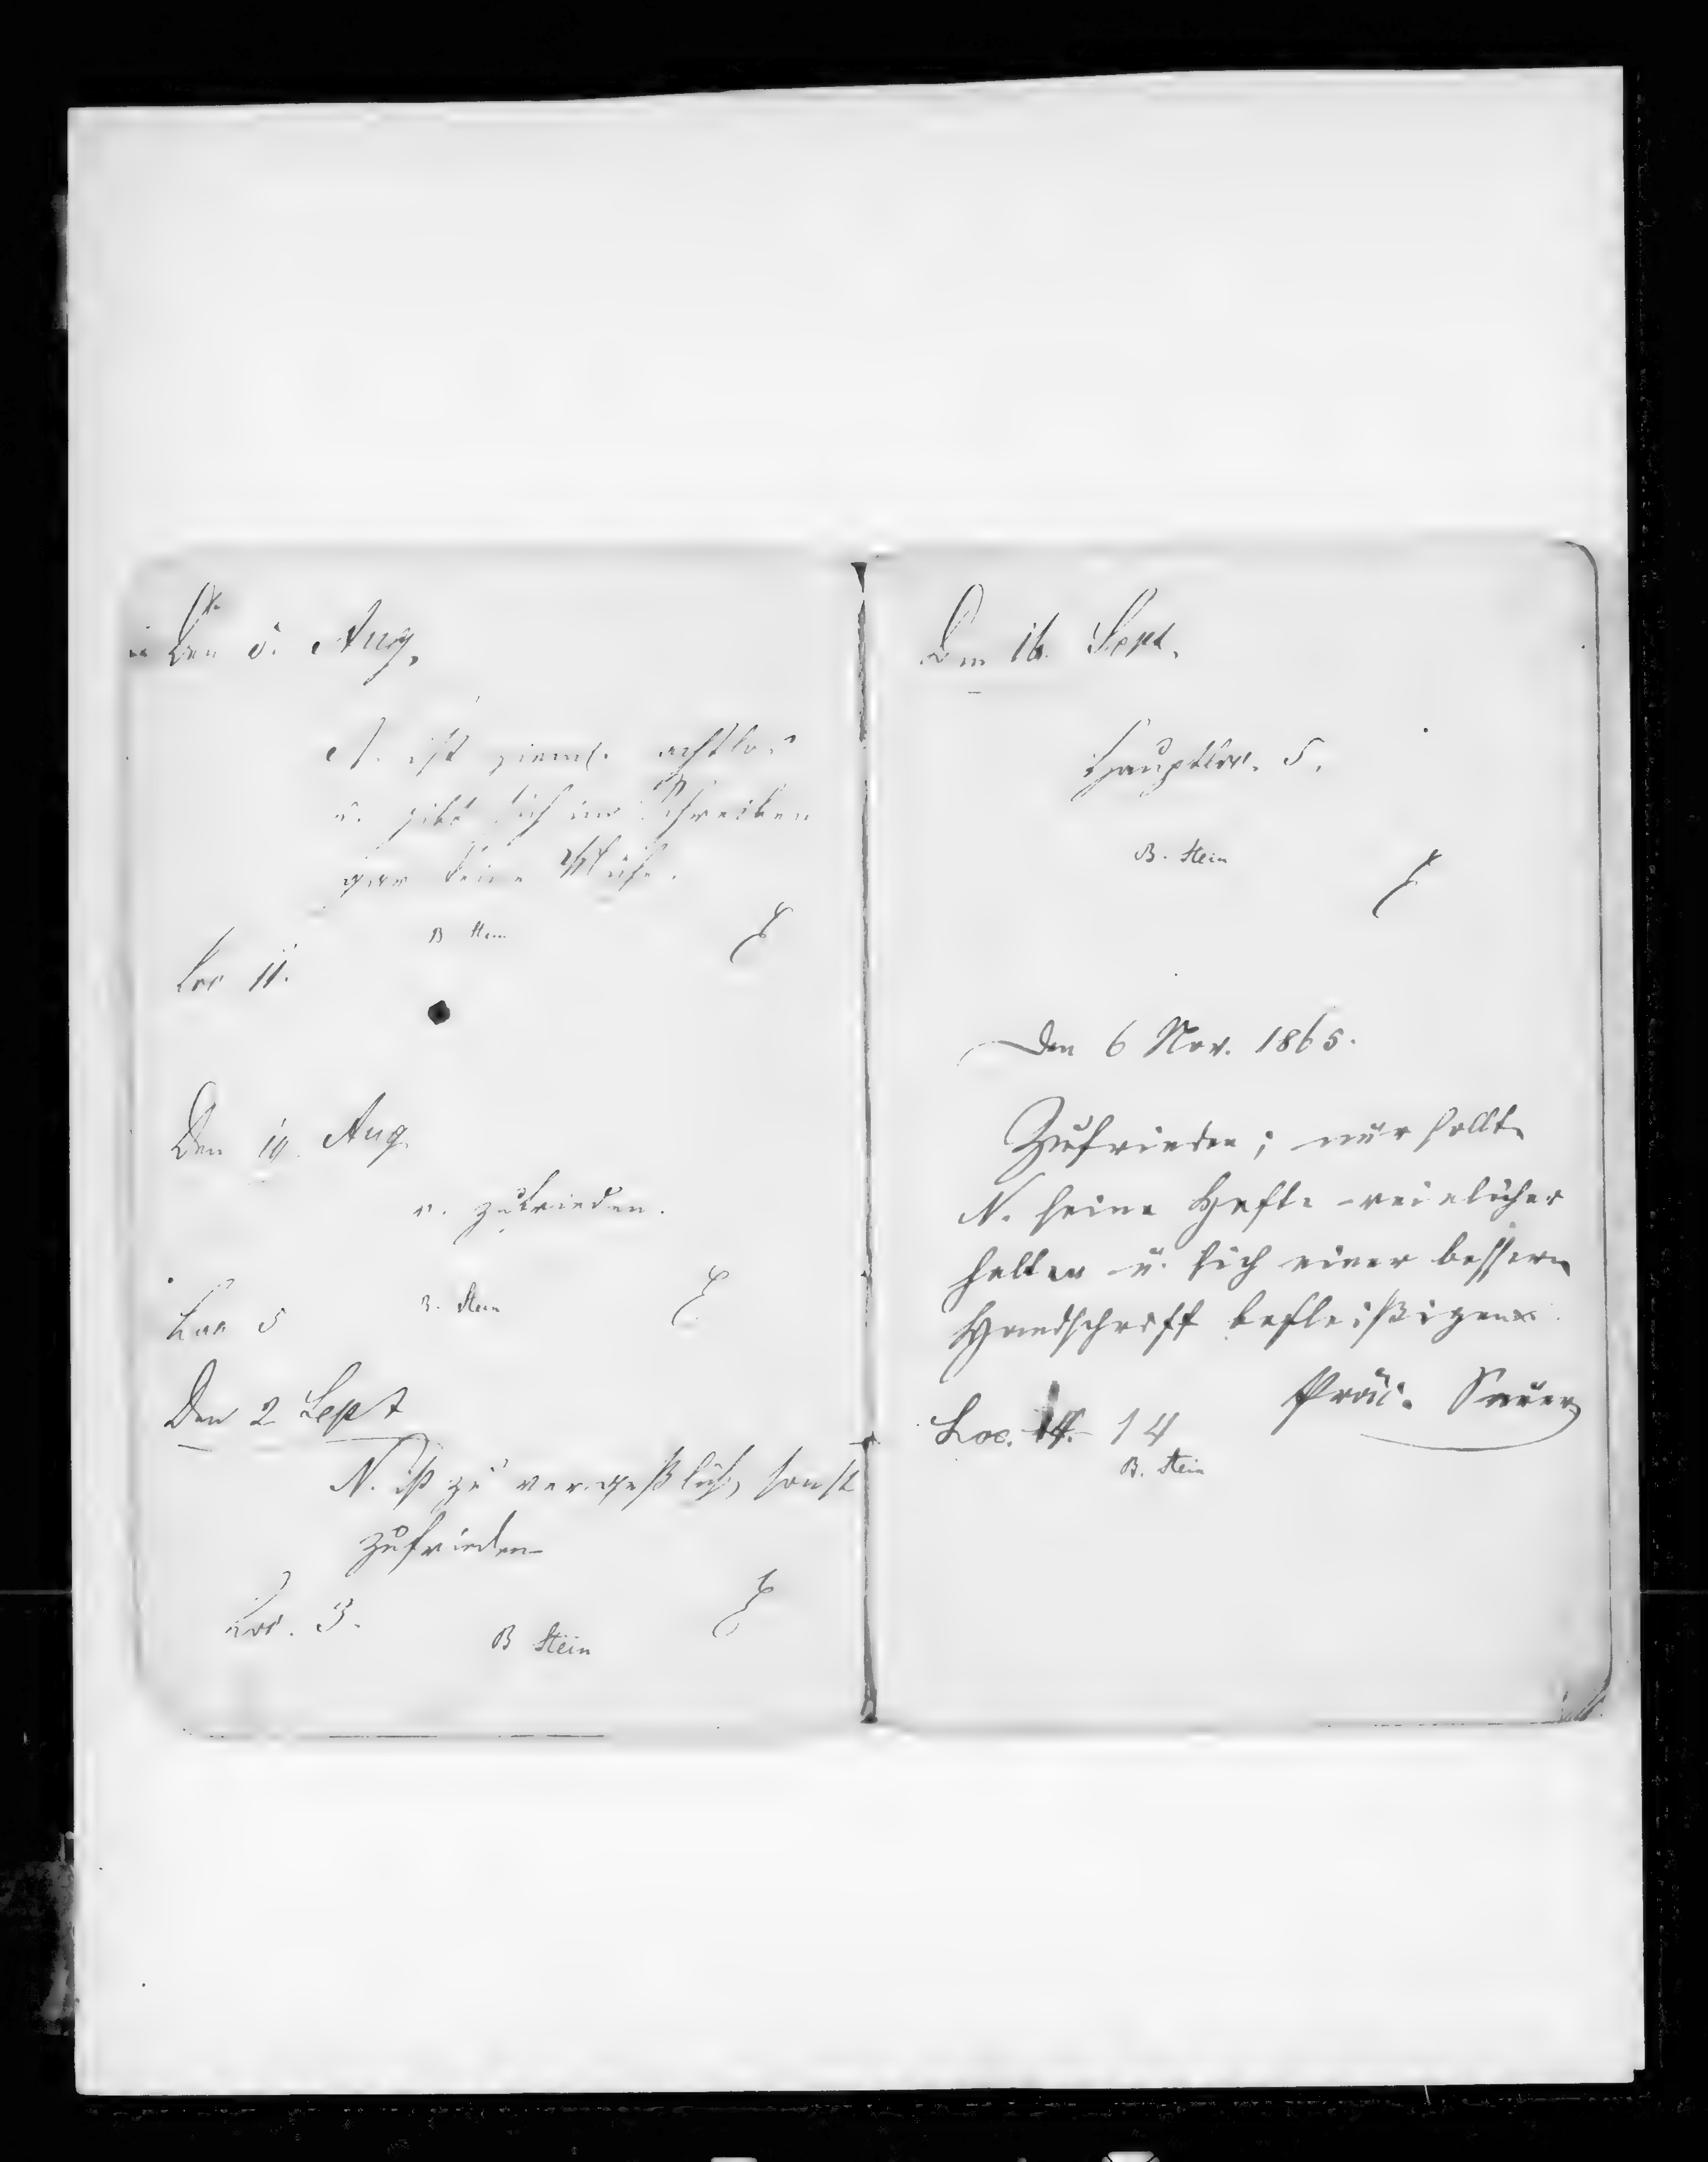 Den 5. Aug.
N. ist zieml. achtlos
u. gibt sich im Schreiben
gar keine Mühe.
B Stein
Loc 11.
Den 19. Aug.
r. zufrieden.
B. Stein
Loc 5
Den 2 Sept
N. ist zu vergeßlich, sonst
zufrieden
Loc. 3.
B Stein
Den 16. Sept.
Hauptloc. 5.
B. Stein
Den 6 Nov. 1865.
Zufrieden; nur sollte
N. seine Hefte reinlicher
halten u. sich einer bessern
Handschrift befleißigen
Präc. Sauer
Loc. 14
B. Stein